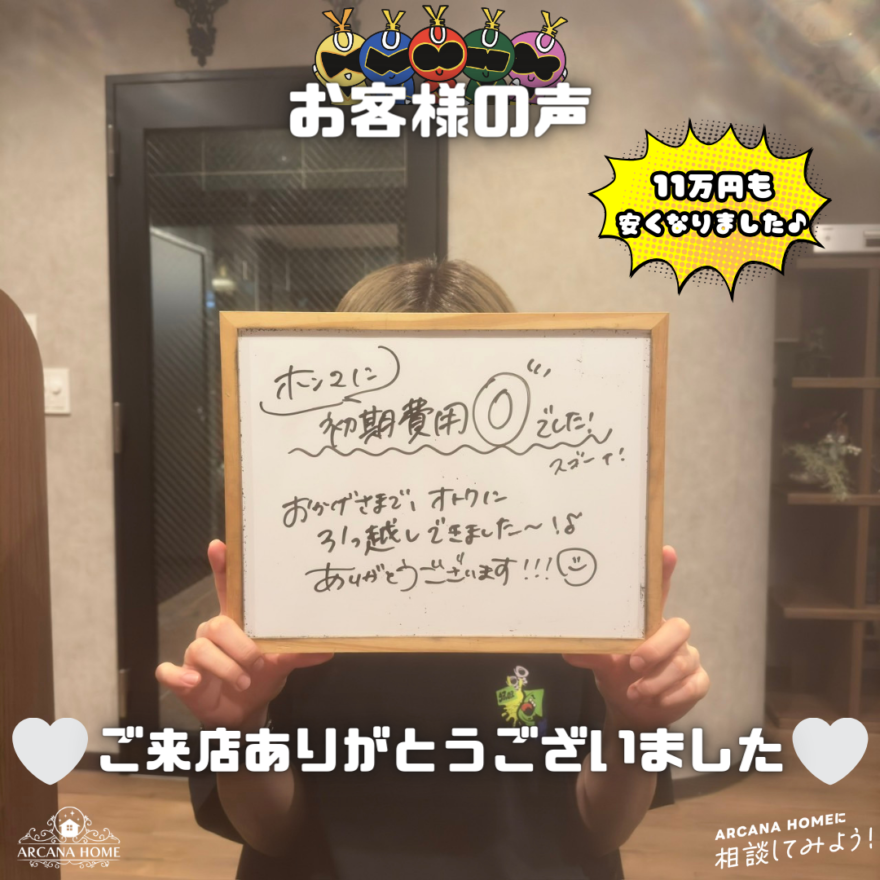 お客様の声
11万円も
安くなりました♪
ホントに
初期費用0でした!
スゴーイ!
おかげさまで、オトクに
引っ越しできました〜!♪
ありがとうございます!!!
ご来店ありがとうございました
ARCANA HOME
ARCANA HOMEに
相談してみよう!